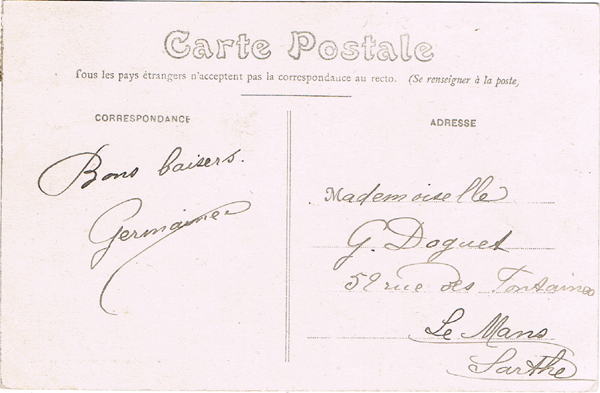 Carte Postale
Tous les pays étrangers n'acceptent pas la correspondance au recto. (Se renseigner à la poste)
CORRESPONDANCE
ADRESSE
Bons baisers.
Germaine
Mademoiselle
G. Doguet
52 rue des Fontaines
Le Mans
Sarthe